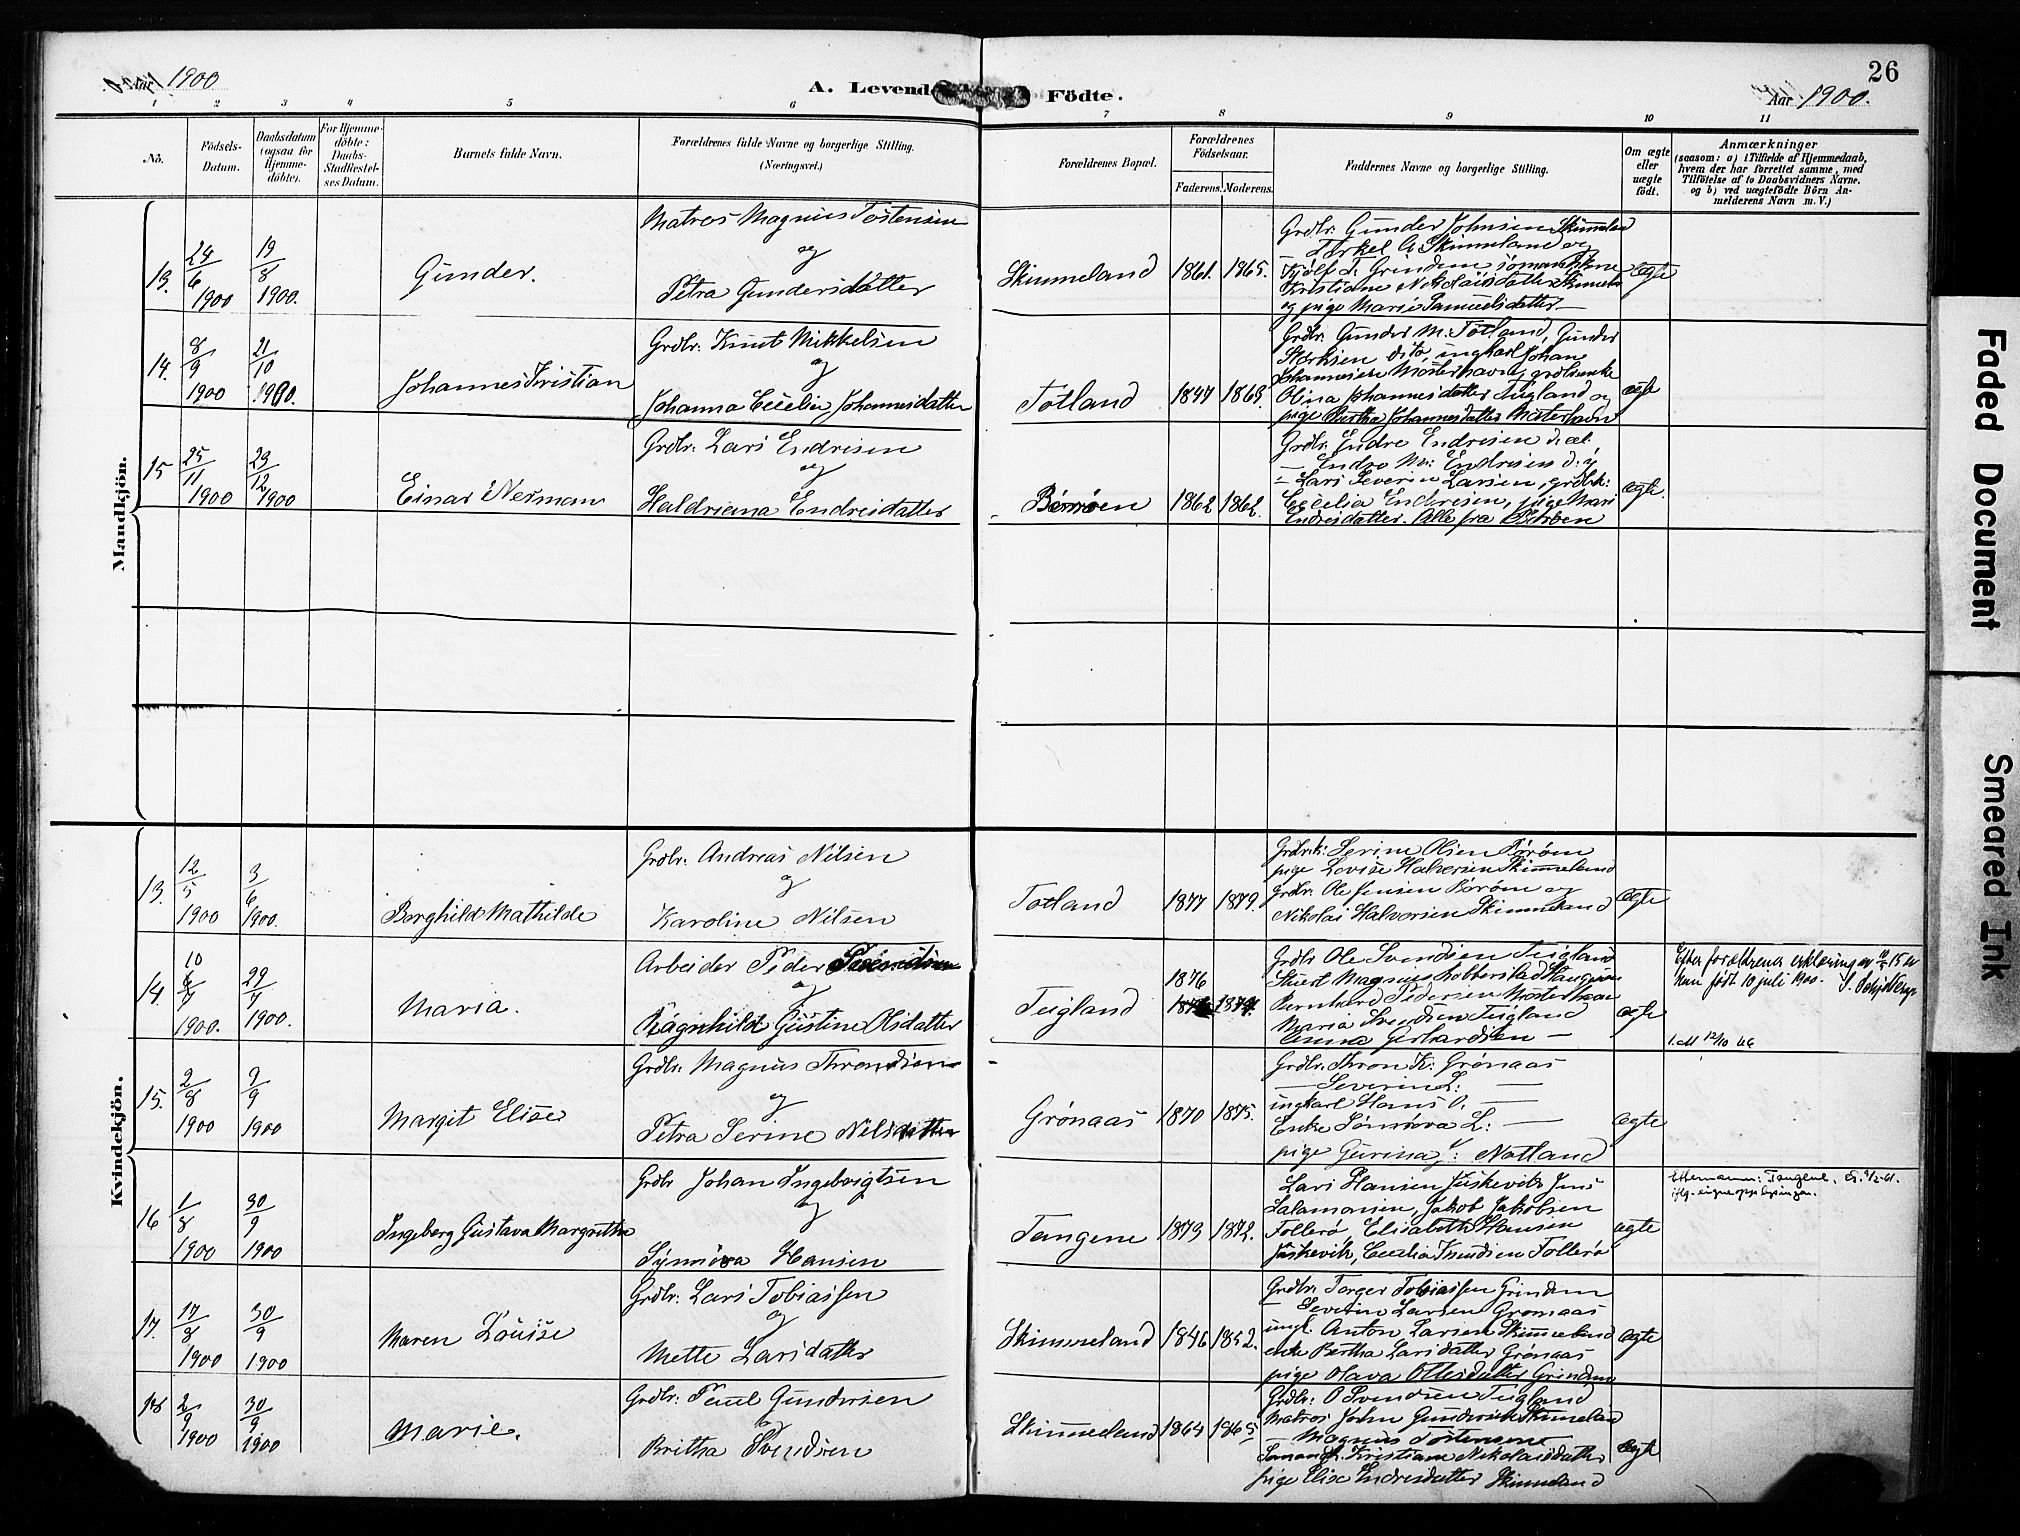 26
1900
A. Levende Födte.
Aar 1900.
1 2 3 4 5 6 7 8 9 10 11
No.
Födsels-Datum.
Daabsdatum (ogsaa for Hjemme-döbte).
For Hjemme-döbte: Daabs-Stadfæstel-ses Datum.
Barnets fulde Navn.
Forældrenes fulde Navne og borgerlige Stilling.
(Næringsvei.)
Forældrenes Bopæl.
Forældrenes Födselsaar.
Faderens. Moderens.
Faddernes Navne og borgerlige Stilling.
Om ægte eller uægte födt.
Anmærkninger
(saasom: a) i Tilfælde af Hjemmedaab,
hvem der har forrettet samme, med
Tilföielse af to Daabsvidners Navne.
og b) ved uægtefödte Börn An-
melderens Navn m. V.)
Mandkjön.
13. 6 1900 19/8 1900. Gunder.
Matros Magnus Tostensen
og
Petra Gundersdatter
Skimmeland 1861. 1865.
Grdbr. Gunder Johnsen Skimmeland
Kristiane Nikolaisdatter
og pige Marie Samuelsdatter
ægte
14. 8/9 1900 21/10 1900. Johannes Kristian
Grdbr. Knut Mikkelsen
og
Johanna Cecelie Johannesdatter
Totland
Grdbr. Gunder M. Totland, Gunder
dito, ungkarl Johan
Olina Johannesdatter Tegland og
pige Bertha Johannesdatter Mosterhavn
ægte
15 25/11 1900 23/12 1900 Einar Nerman
Grdbr. Lars Endresen
og
Haldriana Endresdatter
Børrøen 1862 1862.
Grdbr. Endre Endresen d. æl.
— Endre M. Endresen d. y.
— Lars Severin Larsen, grdbrk:
Cecelia Endresen, pige Mari
Endresdatter. Alle fra Børrøen
ægte.
Kvindekjön.
13. 12/5 1900 3/6 1900. Borghild Mathilde
Grdbr. Andreas Nilsen
og
Karoline Nilsen
Totland 1877 1879.
Serine Olsen Børøen
pige Lovise Halvorsen Skimmeland
grdbr. Ole Jensen Børøen og
Nikolai Halvorsen Skimmeland
ægte
14. 10 /7 1900. 29/7 1900. Maria.
Arbeider Peder
og
Ragnhild Gustine Olsdatter
Teigland 1876
Grdbr Ole Svendsen Teigland
Bernhard Pedersen Mosterhavn
Maria Svendsen Teigland
Gerhardsen —
ægte
Efter forældrenes erklæring av
hun født 10 juli 1900.
15. 2/8 1900 9/9 1900 Margit Elise
Grdbr. Magnus Thronsen
og
Petra Serine Nilsdatter
Grönaas 1870 1875.
Grdbr. Thron K. Grønaas
— Severin L: —
ungkarl Hans O. —
Enke Sønnøva L: —
pige Gurina J: Notland
ægte
16 1/8 1900 30/9 1900 Ingeborg Gustava Margrethe
Grdbr Johan Ingebrigtsen
og
Synnöva Hansen
Tangene 1873 1872.
Lars Hansen Juskevik Jens
Salamonsen, Jakob Jakobsen
Follerø, Elisabeth Hansen
Juskevik, Cecelia Knudsen Follerø
ægte
Etternamn: Tangene.
iflg. eigne opplysningar.
17. 17/8 1900 30/9 1900 Maren Louise
Grdbr. Lars Tobiassen
og
Mette Larsdatter
Skimmeland 1846 1852.
Grdbr. Torger Tobiassen Grindem
— Severin Larsen Grønaas
ungk. Anton Larsen Skimmeland
enke Bertha Larsdatter Grønaas
pige Olava Ottesdatter Grindem
ægte
18 2/9 1900 30/9 1900 Marie.
Grdbr. Paul Gundersen
og
Britha Svendsen
Skimmeland 1864 1865
Grdbr. O Svendsen Teigland
Matros John Gundersen Skimmeland
Magnus Tostensen
Kristiane Nikolaisdatter
pige Elise Endresdatter Skimmeland
ægte
Faded Document
Smeared Ink